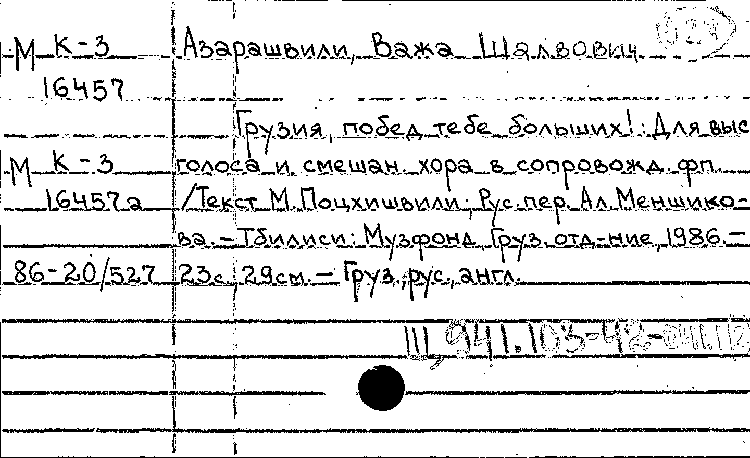 М К-3 Азарашвили, Важа Шалвович
16457
Грузия, побед тебе больших!: Для выс.
М К-3 голоса и смешан. хора в сопровожд. фп.
16457а /Текст М. Поцхишвили; Рус. пер. Ал. Меншико-
ва. – Тбилиси: Музфонд, Груз. отд-ние, 1986. –
86-20/527 23с.; 29см. – Груз., рус., англ.